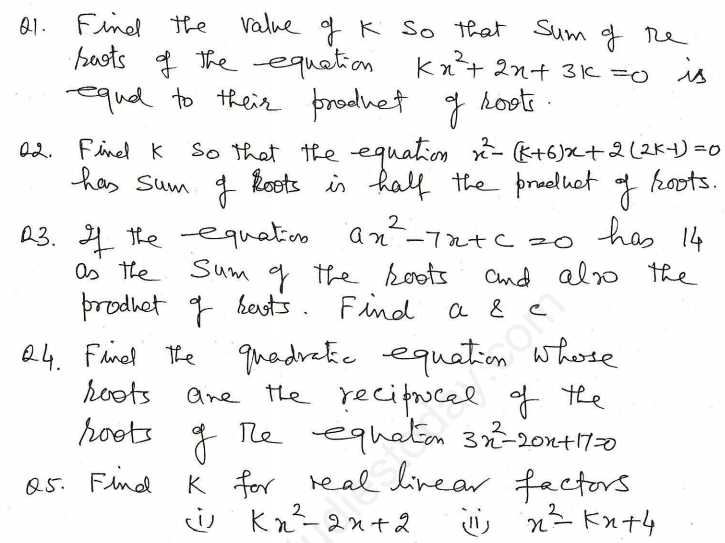 Q1. Find the value of K so that sum of the
roots of the equation Kx² + 2x + 3K = 0 is
equal to their product of roots.
Q2. Find K so that the equation x² - (K+6)x + 2(2K-1) = 0
has sum of roots is half the product of roots.
Q3. If the equation ax² - 7x + c = 0 has 14
as the sum of the roots and also the
product of roots. Find a & c
Q4. Find the quadratic equation whose
roots are the reciprocal of the
roots of the equation 3x² - 20x + 17 = 0
Q5. Find K for real linear factors
(i) Kx² - 2x + 2 (ii) x² - Kx + 4